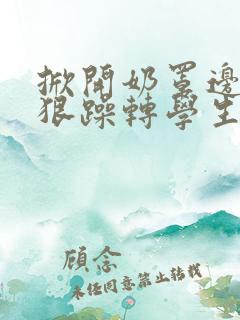 掀開奶罩邊
狠躁轉學生
顾念
未经同意禁止转载